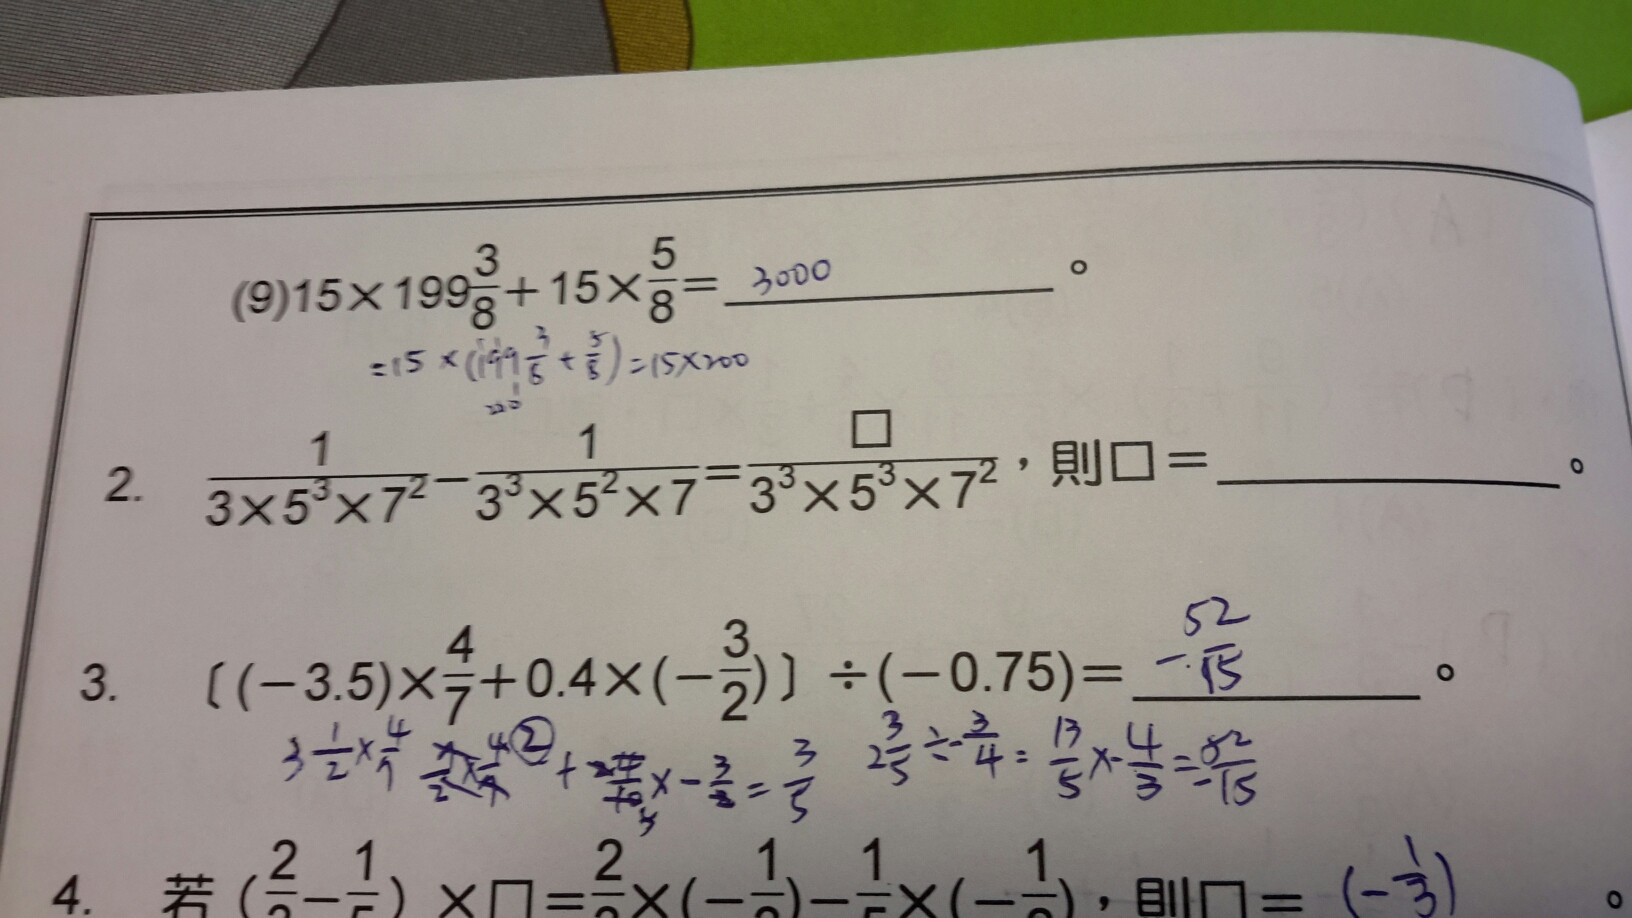 (9)15×199 3/8+15×5/8= 3000 。
=15×(199 3/8+5/8)=15×200
200
2. 1/(3×5³×7²)−1/(3³×5²×7)=□/(3³×5³×7²)，則□=________。
3. 〔(−3.5)×4/7+0.4×(−3/2)〕÷(−0.75)= −52/15 。
3 1/2×4/7 7/2×4/7 ② + 4/10×−3/2=3/5 2 3/5÷−3/4=13/5×−4/3=−52/15
4. 若(2/3−1/5)×□=2/3×(−1/3)−1/5×(−1/3)，則□= (−1/3) 。